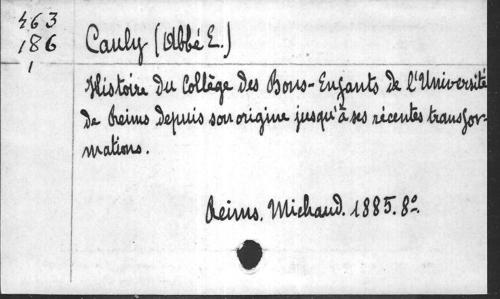 463
186
1
Cauly (Abbé E.)
Histoire du Collège des Bons-Enfants de l'Université
de Reims depuis son origine jusqu'à ses récentes transfor-
mations.
Reims. Michaud. 1885. 8º.